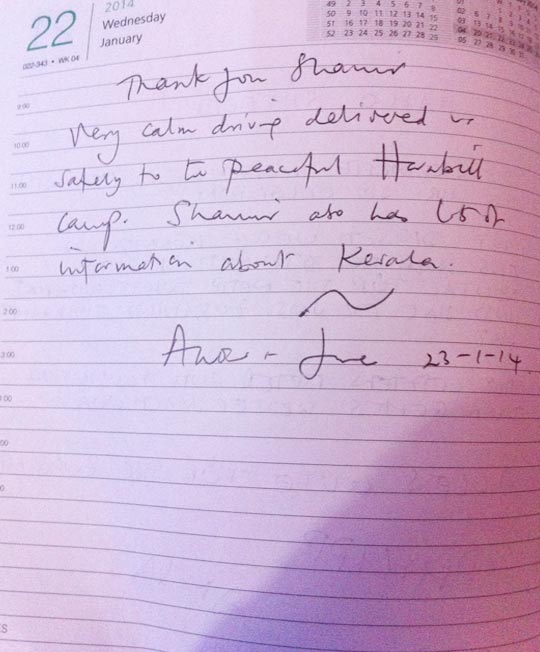 2014
22
Wednesday
January
022-343 • WK 04
49 2 3 4 5 6 7 8
50 9 10 11 12 13 14 15
51 16 17 18 19 20 21 22
52 23 24 25 26 27 28 29
Thank you Shamir
9:00
Very calm driving delivered us
10:00
safely to the peaceful Hornbill
11:00
camp. Shamir also has lots of
12:00
information about Kerala.
1:00
2:00
June 23-1-14
3:00